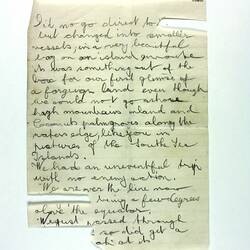 did no go direct to
but changed into smaller
vessels, in a very beautiful
bay on an island
it was something out of the
box for our first glimpse of
a foreign land even though
we could not go ashore
high mountains inland and
coconut palmgroves along the
waters edge, like you in
pictures of the South Sea
Islands.
We had an uneventful trip
with no enemy action.
We are over the line now
being a few degrees
above the equator
We just passed through
so did get a
at it